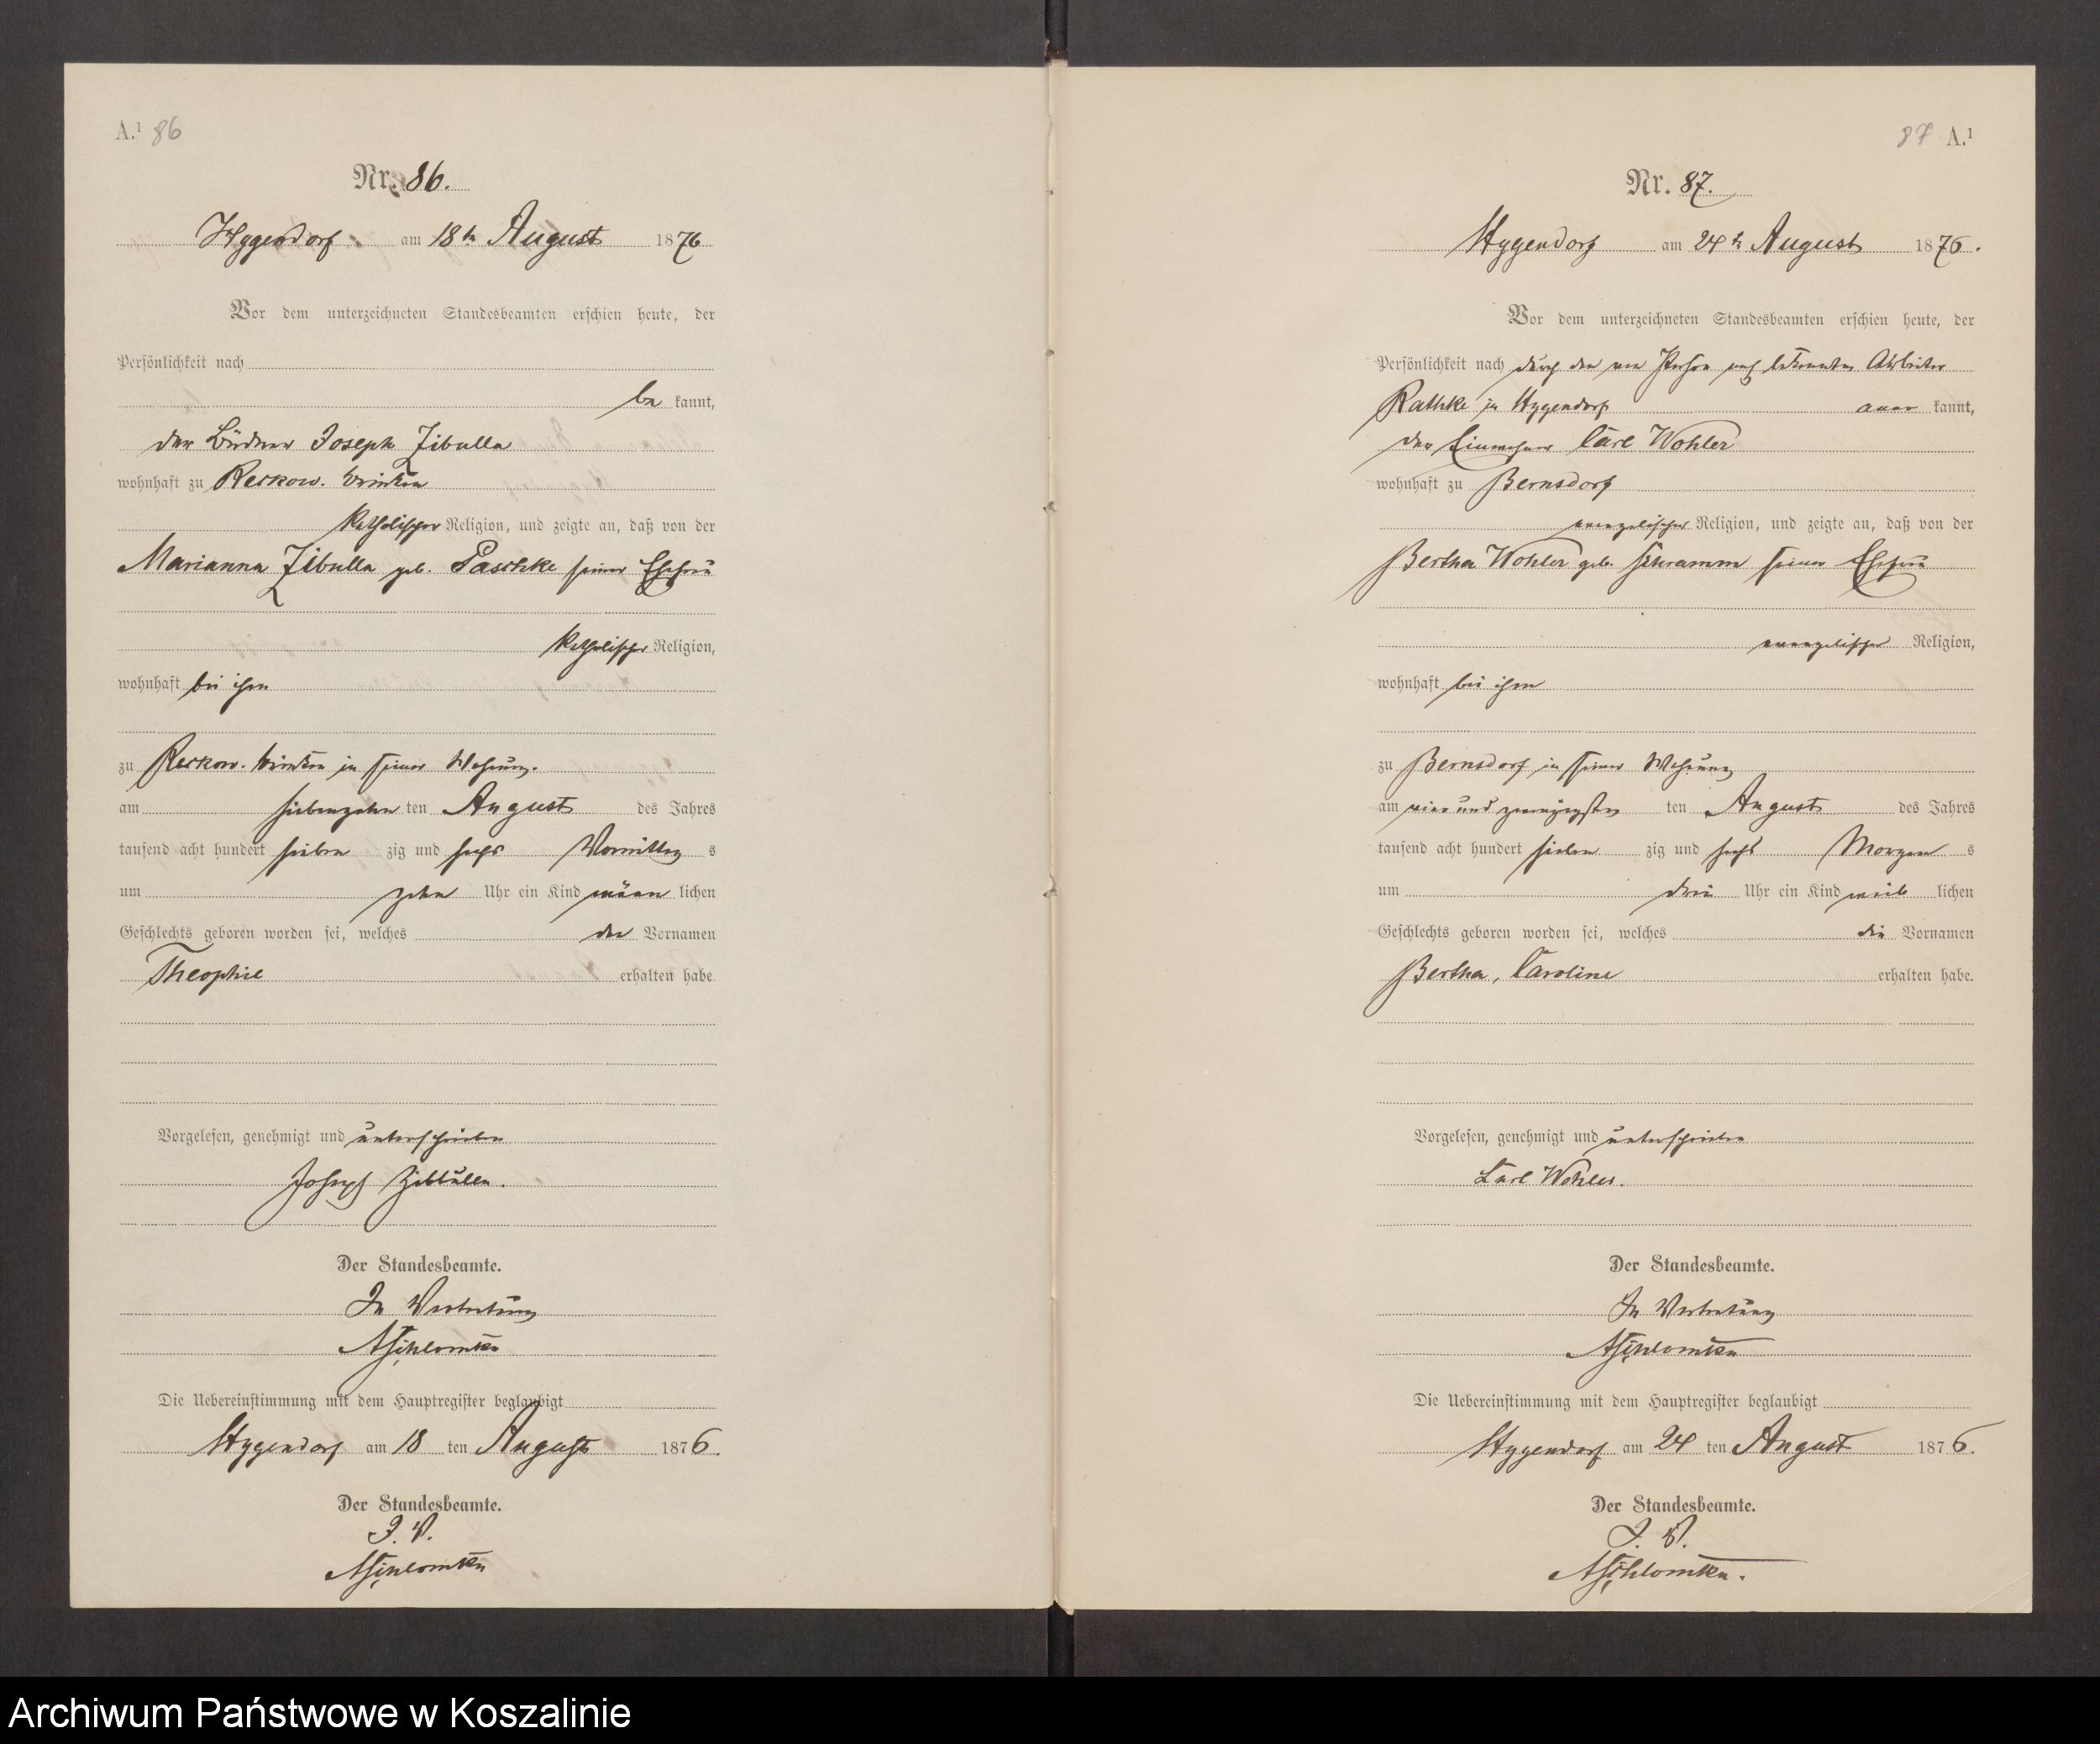 A.¹ 86
Nr. 86.
Hygendorf am 18ten August 1876
Vor dem unterzeichneten Standesbeamten erschien heute, der
Persönlichkeit nach
be kannt,
der Büdner Joseph Zibulla
wohnhaft zu Reckow.
katholischer Religion, und zeigte an, daß von der
Marianna Zibulla geb. Paschke seiner Ehefrau
katholischer Religion,
wohnhaft bei ihm
zu Reckow. in seiner Wohnung.
am siebenzehn ten August des Jahres
tausend acht hundert sieben zig und sechs Vormittag s
um zehn Uhr ein Kind männ lichen
Geschlechts geboren worden sei, welches den Vornamen
Theophil erhalten habe
Vorgelesen, genehmigt und unterschrieben
Joseph Zibbulla.
Der Standesbeamte.
In Vertretung
Die Uebereinstimmung mit dem Hauptregister beglaubigt
Hygendorf am 18 ten August 1876.
Der Standesbeamte.
I. V.
87 A.¹
Nr. 87.
Hygendorf am 24ten August 1876.
Vor dem unterzeichneten Standesbeamten erschien heute, der
Persönlichkeit nach durch den von Person auch bekannten Arbeiter
Rathke in Hygendorf aner kannt,
der Einwohner Carl Wohler
wohnhaft zu Bernsdorf
evangelischer Religion, und zeigte an, daß von der
Bertha Wohler geb. Schramm seiner Ehefrau
evangelischer Religion,
wohnhaft bei ihm
zu Bernsdorf in seiner Wohnung
am vier und zwanzigsten ten August des Jahres
tausend acht hundert sieben zig und sechs Morgen s
um drei Uhr ein Kind weib lichen
Geschlechts geboren worden sei, welches die Vornamen
Bertha, Caroline erhalten habe.
Vorgelesen, genehmigt und unterschrieben
Carl Wohler.
Der Standesbeamte.
In Vertretung
Die Uebereinstimmung mit dem Hauptregister beglaubigt
Hygendorf am 24 ten August 1876.
Der Standesbeamte.
I. V.
Archiwum Państwowe w Koszalinie